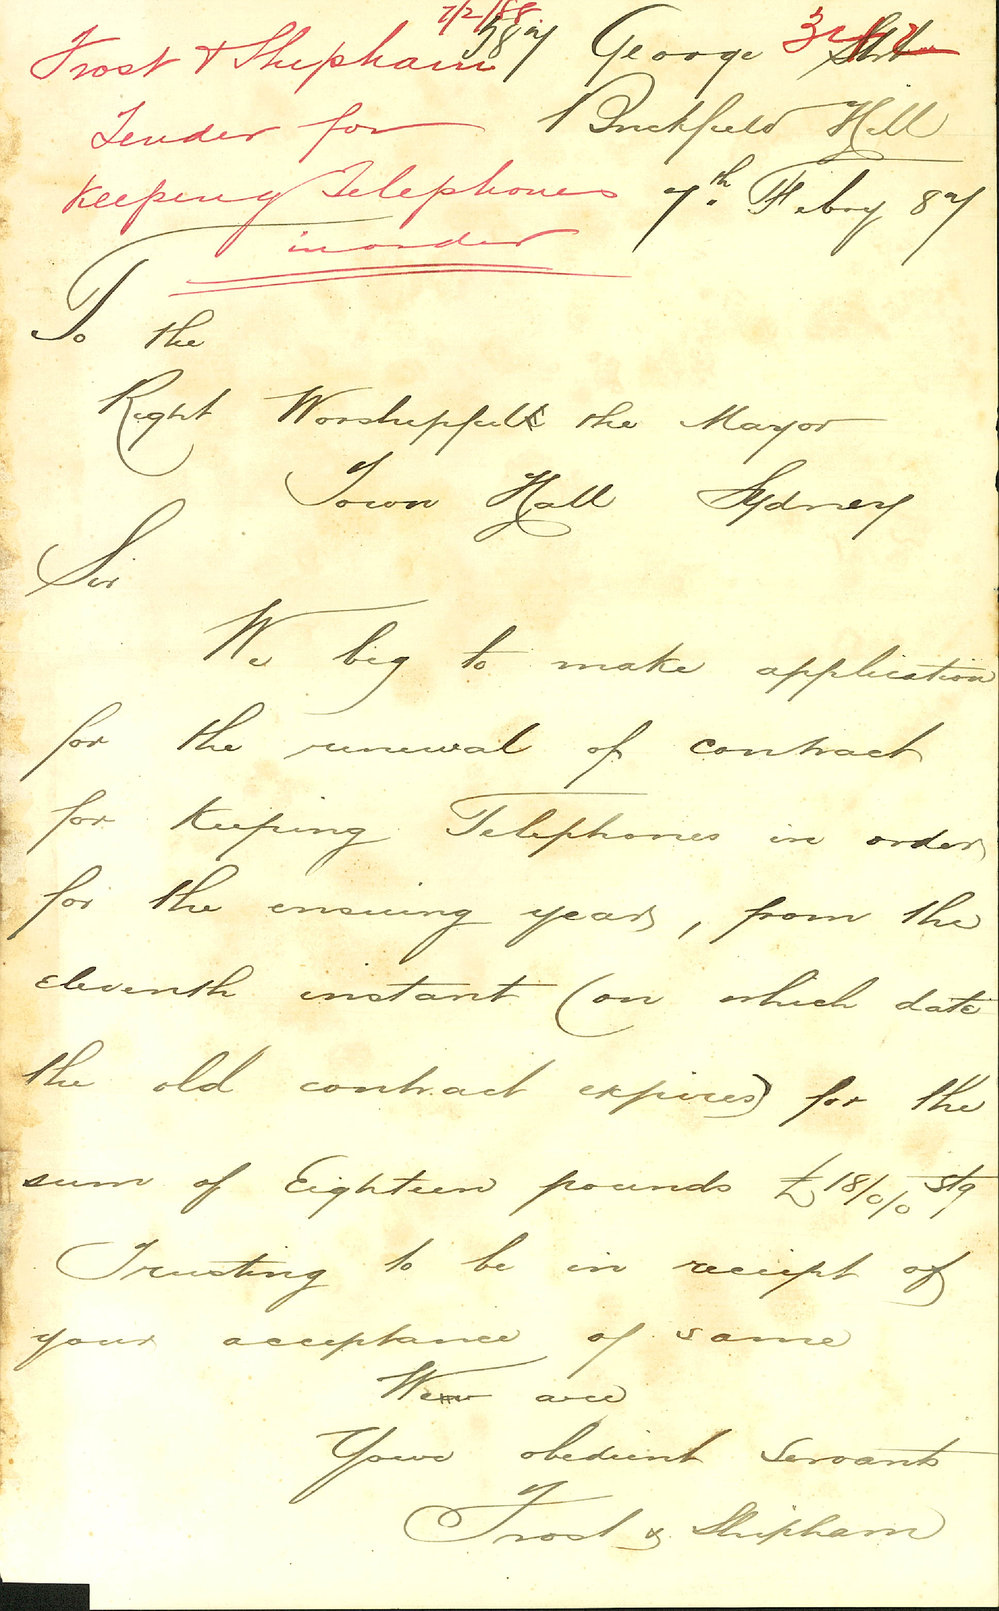 7/2/88
Frost & Shipham
Tender for
Keeping Telephones
in order
George Strt
Brickfield Hill
7th. Febry 87
To the
Right Worshipfull the Mayor
Town Hall Sydney
Sir
We beg to make application
for the renewal of contract
for Keeping Telephones in order
for the ensuing year, from the
eleventh instant (on which date
the old contract expires) for the
sum of Eighteen pounds £18/0/0 stg
Trusting to be in receipt of
your acceptance of same
We are
Yours obedient Servants
Frost & Shipham